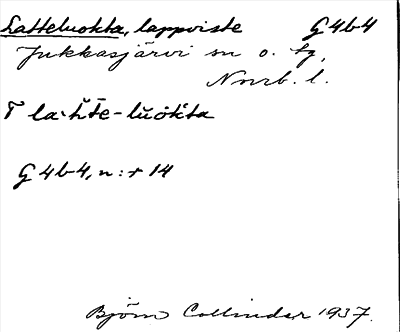 Latteluokta, lappviste G 4b4
Jukkasjärvi sn o. tg,
Norrb. l.
T la·t̄t̄e-lŭok̄ta
G 4b4, n:r 14
Björn Collinder 1937.